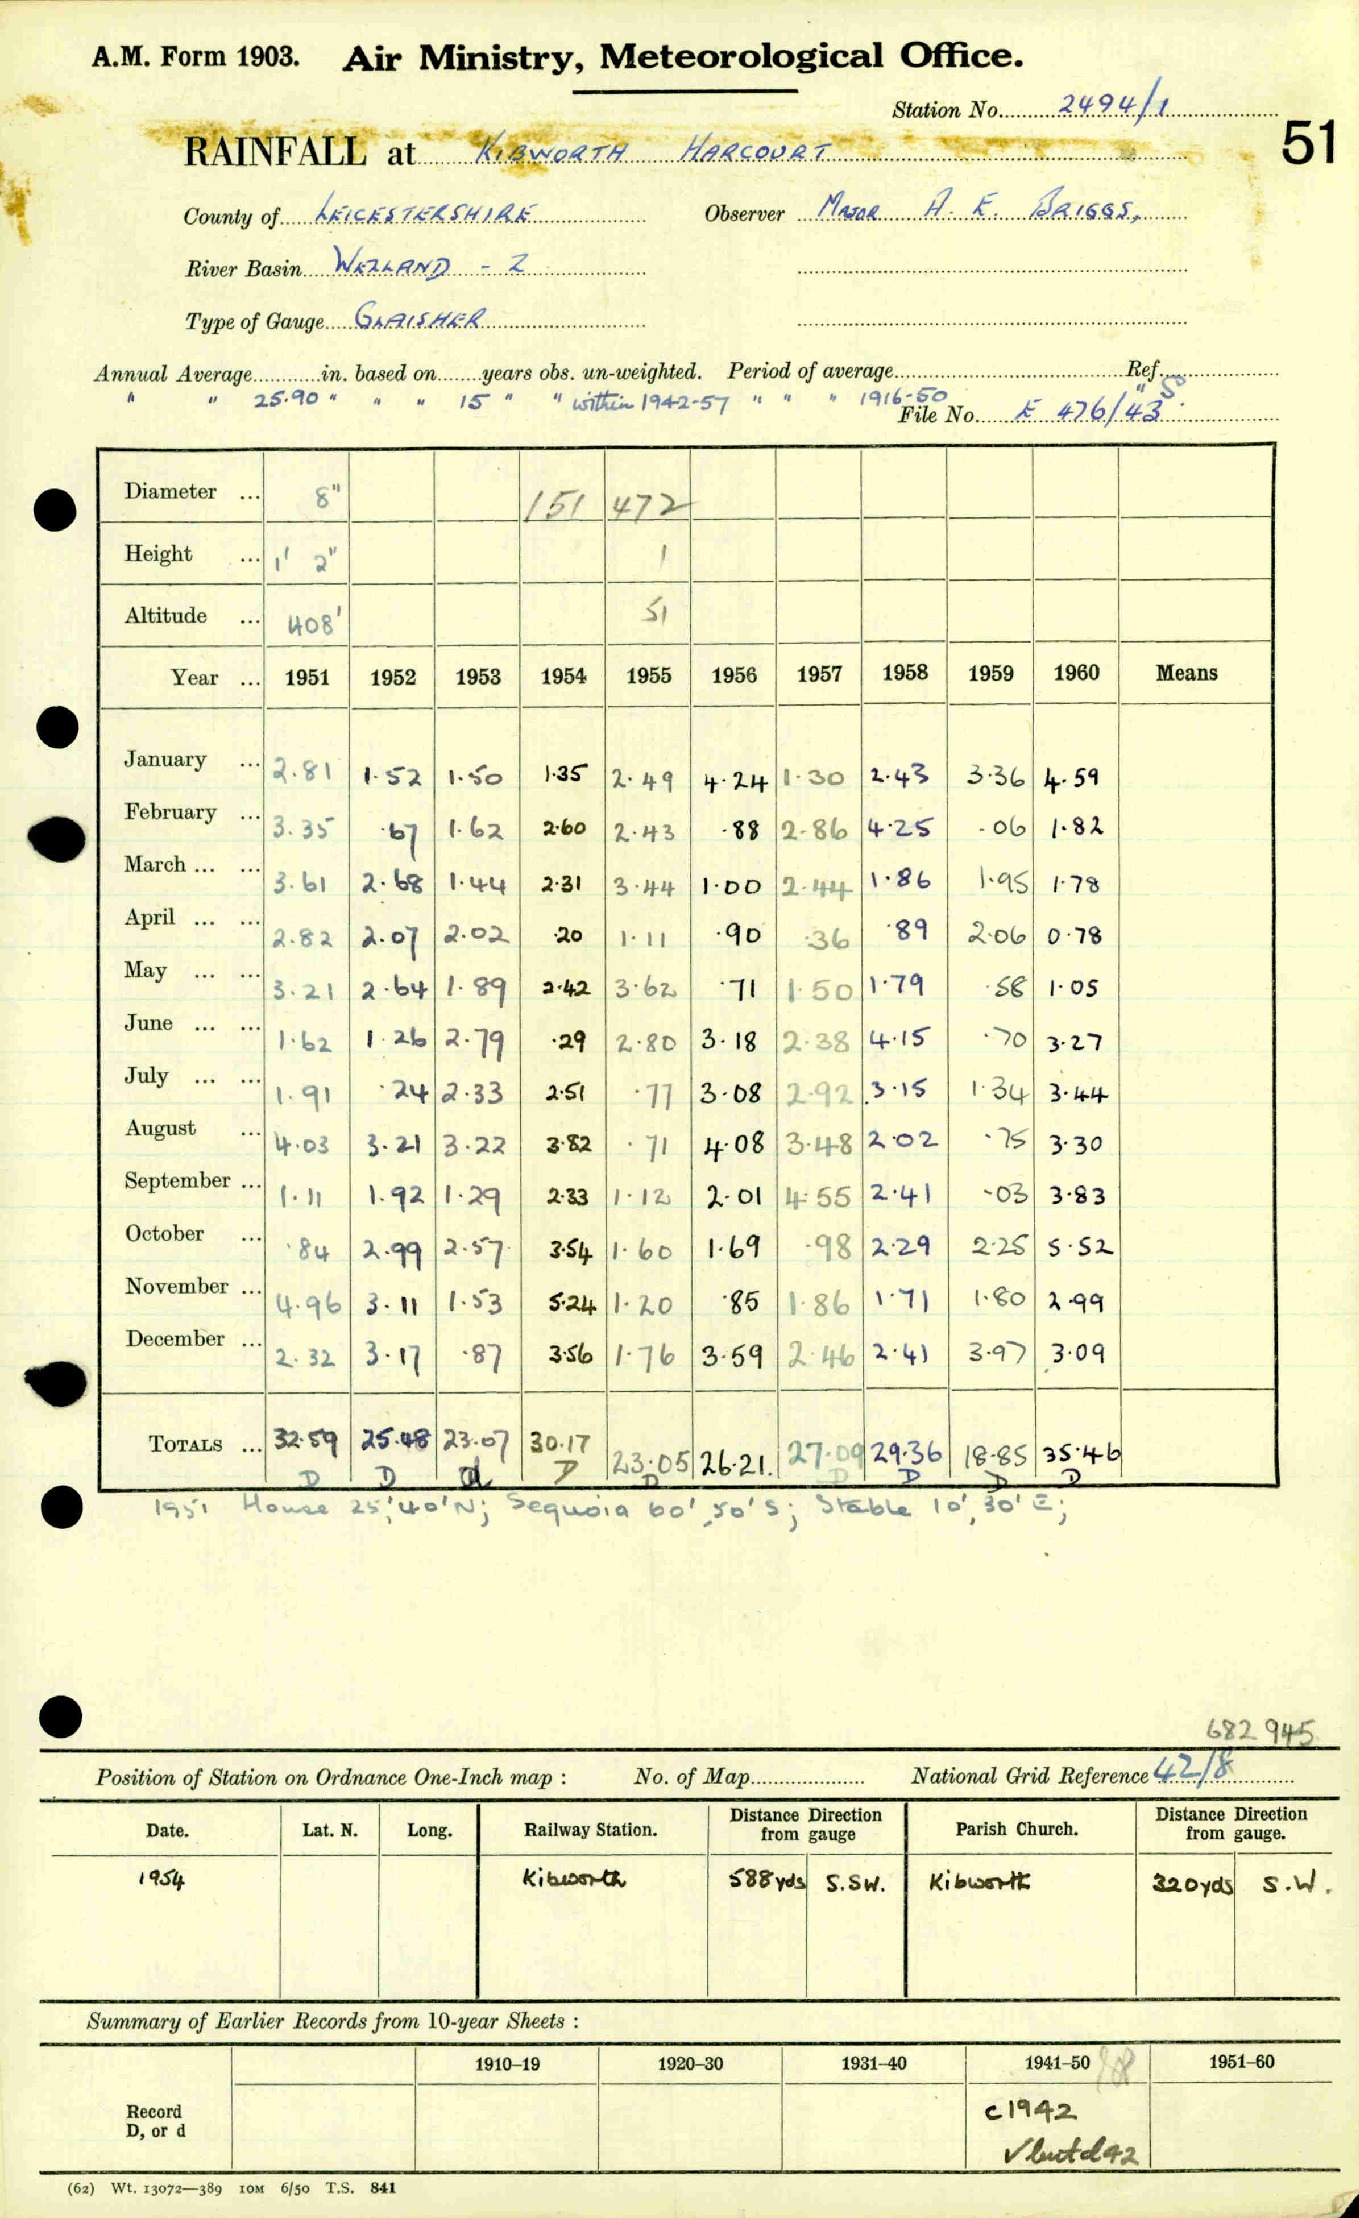 A.M. Form 1903. Air Ministry, Meteorological Office.
Station No. 2494/1
51
RAINFALL at KIBWORTH HARCOURT
County of LEICESTERSHIRE Observer MAJOR A. E. BRIGGS,
River Basin WELLAND - Z
Type of Gauge GLAISHER
Annual Average in. based on years obs. un-weighted. Period of average Ref.
" " 25.90 " " " 15 " " within 1942-57 " " " 1916-50 "
File No. E 476/43
Diameter ... 8" 151 472
Height ... 1' 2" 1
Altitude ... 408' 51
Year ... 1951 1952 1953 1954 1955 1956 1957 1958 1959 1960 Means
January ... 2.81 1.52 1.50 1.35 2.49 4.24 1.30 2.43 3.36 4.59
February ... 3.35 .67 1.62 2.60 2.43 .88 2.86 4.25 .06 1.82
March ... ... 3.61 2.68 1.44 2.31 3.44 1.00 2.44 1.86 1.95 1.78
April ... ... 2.82 2.07 2.02 .20 1.11 .90 .36 .89 2.06 0.78
May ... ... 3.21 2.64 1.89 2.42 3.62 .71 1.50 1.79 .58 1.05
June ... ... 1.62 1.26 2.79 .29 2.80 3.18 2.38 4.15 .70 3.27
July ... ... 1.91 .24 2.33 2.51 .77 3.08 2.92 3.15 1.34 3.44
August ... 4.03 3.21 3.22 3.82 .71 4.08 3.48 2.02 .75 3.30
September ... 1.11 1.92 1.29 2.33 1.12 2.01 4.55 2.41 .03 3.83
October ... .84 2.99 2.57 3.54 1.60 1.69 .98 2.29 2.25 5.52
November ... 4.96 3.11 1.53 5.24 1.20 .85 1.86 1.71 1.80 2.99
December ... 2.32 3.17 .87 3.56 1.76 3.59 2.46 2.41 3.97 3.09
TOTALS ... 32.59 25.48 23.07 30.17 23.05 26.21. 27.09 29.36 18.85 35.46
D D d D D D D D D
1951 House 25', 40' N; Sequoia 60', 50' S; Stable 10', 30' E;
682 945
Position of Station on Ordnance One-Inch map : No. of Map National Grid Reference 42/8
Date. Lat. N. Long. Railway Station. Distance Direction from gauge Parish Church. Distance Direction from gauge.
1954 Kibworth 588yds S.SW. Kibworth 320yds S.W.
Summary of Earlier Records from 10-year Sheets :
1910–19 1920–30 1931–40 1941–50 1951–60
Record c1942
D, or d √ but d 42
(62) Wt. 13072—389 10M 6/50 T.S. 841